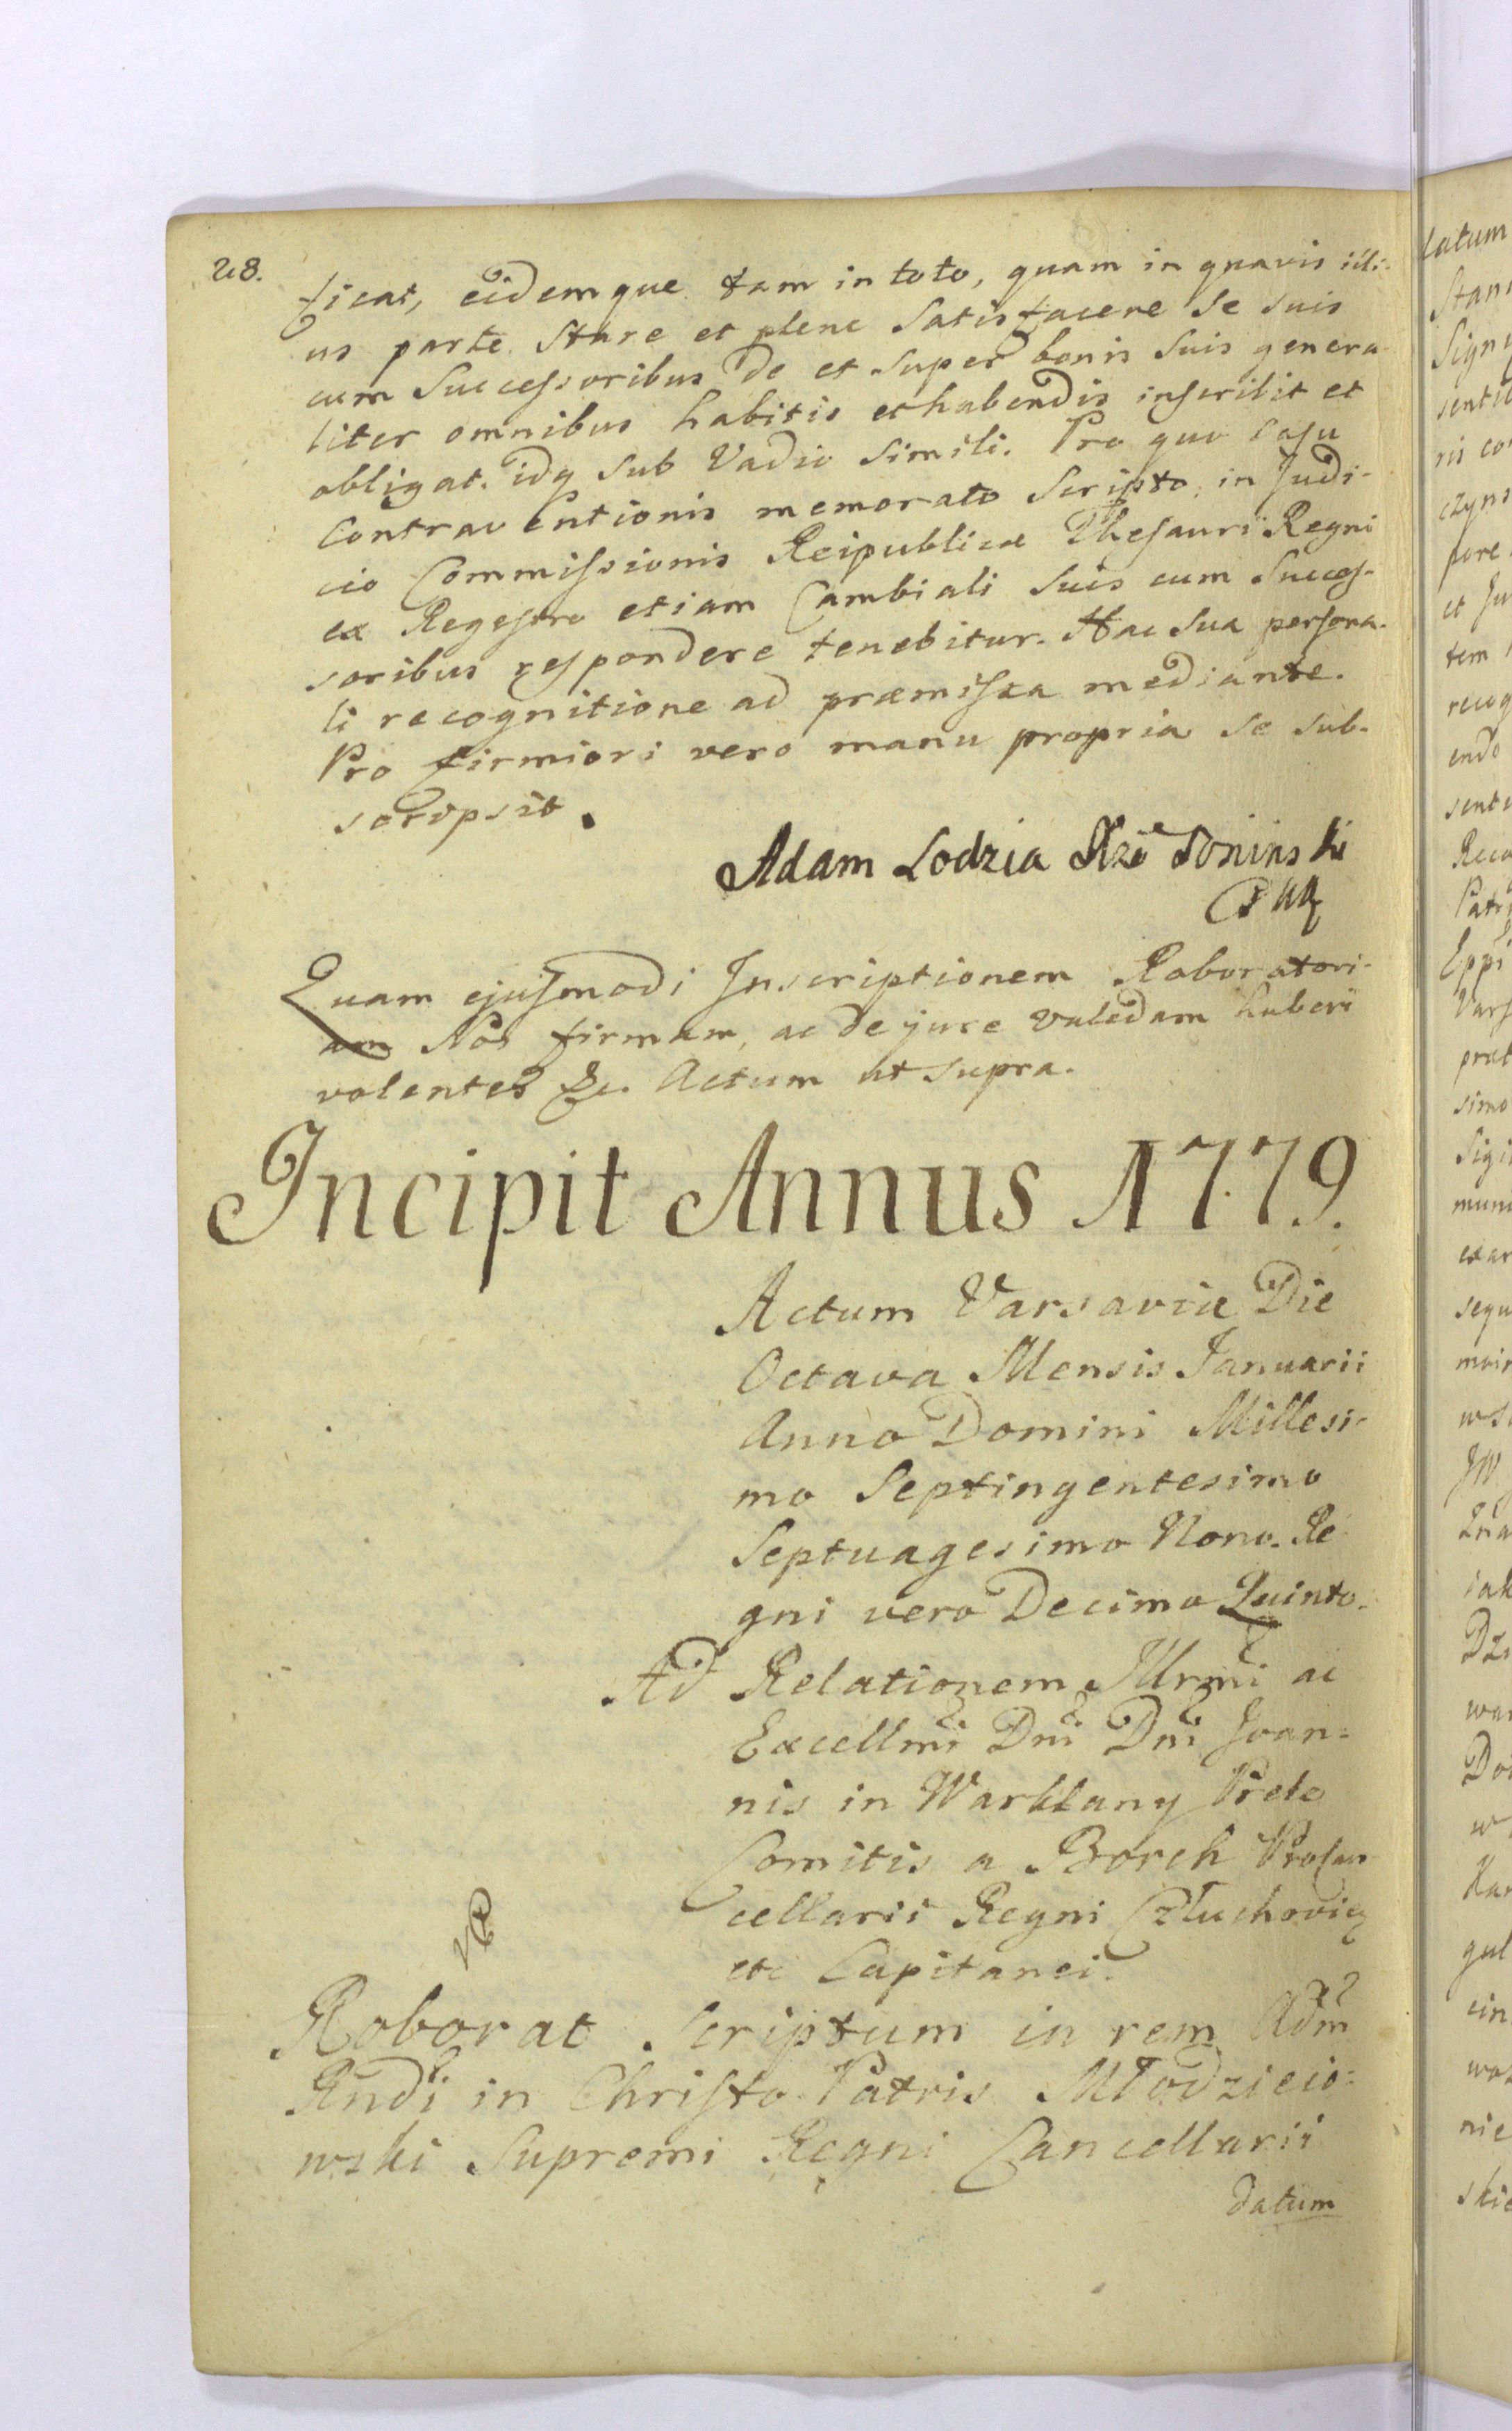 28.
ficat, eidemque tam in toto, quam in quavis illi-
us parte Stare et plene Satisfacere se suis
cum Successoribus de et super bonis suis genera-
liter omnibus habitis et habendis inscribit et
obligat. idq sub Vadio simili. Pro quo casu
Contraventionis memorato Scripto, in Judi-
cio Commissionis Reipublicæ Thesauri Regni
ex Regestro etiam Cambiali Suis cum Succes-
soribus respondere tenebitur. Hac Sua persona-
li recognitione ad præmissa mediante.
Pro firmiori vero manu propria se sub-
scripsit.
Adam Lodzia Xże Poninski
Quam ejusmodi Inscriptionem Roboratori-
am Nos firmam, ac de jure validam haberi
volentes &c. Actum ut supra.
Incipit Annus 1779.
Actum Varsaviæ Die
Octava Mensis Januarii
Anno Domini Millesi-
mo Septingentesimo
Septuagesimo Nono. Re
gni vero Decimo Quinto.
Ad Relationem Illrmi ac
Excellmi Dni Dni Joan-
nis in Warklany Prele
Comitis a Borch Procan
cellarii Regni Człuchovien
etc Capitanei.
Roborat Scriptum in rem Adm
Rndi in Christo Patris Młodzieio-
wski Supremi Regni Cancellarii
datum